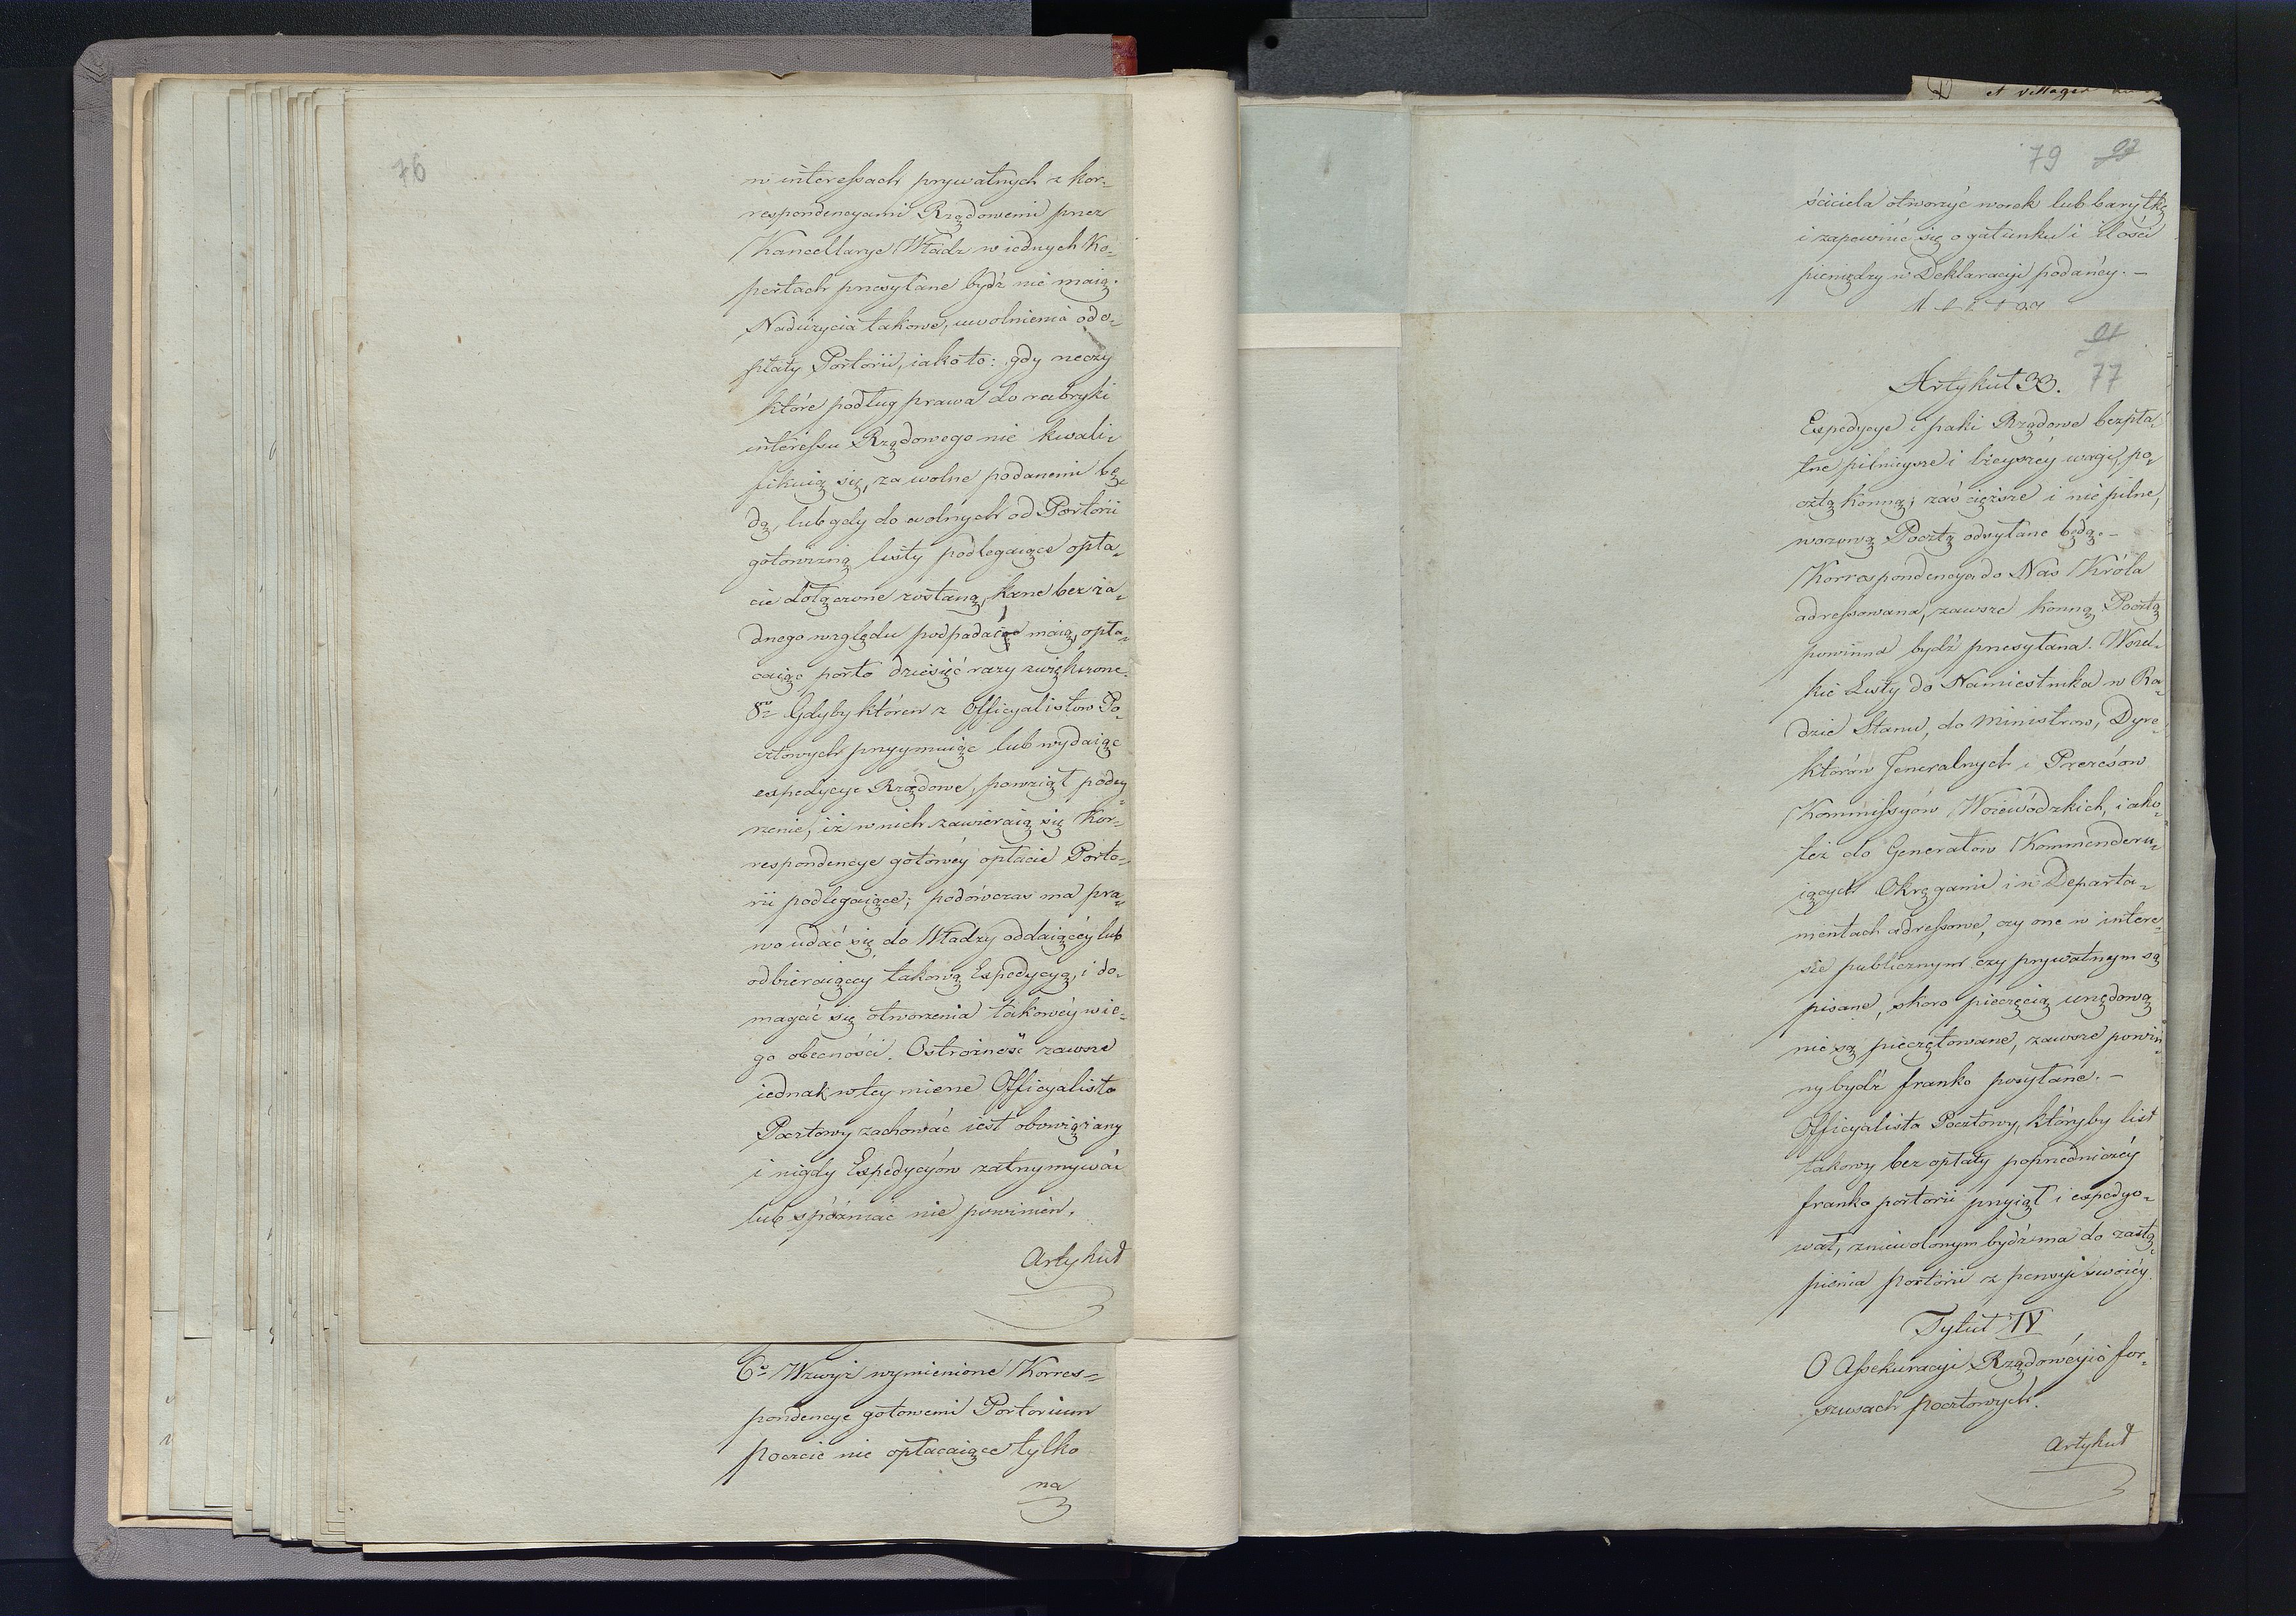 76
w interessach prywatnych z kor-
respondencyami Rządowemi przez
Kancellarye Władz w iednych Ko-
pertach przesyłane bydź nie maią.
Nadużycia takowe, uwolnienia od o-
płaty Portorii, iako to: gdy rzeczy
które podług prawa do rubryki
interessu Rządowego nie kwali-
fikuią się, za wolne podanemi bę-
dą, lub gdy do wolnych od Portorii
gotowizną listy podlegaiące opła-
cie dołączone zostaną, karze bez ża-
dnego względu podpadać maią, opła-
caiąc porto dziesięć razy zwiększone.
8vo Gdyby któren z Officyalistow Po-
cztowych przyymuiąc lub wydaiąc
expedycye Rządowe, powziął podey-
rzenie, iż w nich zawieraią się Kor-
respondencye gotowéy opłacie Porto-
rii podlegaiące; podówczas ma pra-
wo udać się do Władzy oddaiącéy lub
odbieraiącey takową Expedycyą, i do-
magać się otworzenia takowéy w ie-
go obecności. Ostrożność zawsze
iednak w tey mierze Officyalista
Pocztowy zachować iest obowiązany
i nigdy Expedycyów zatrzymywać
lub spóźniać nie powinien.
Artykuł
6o Wzwyż wymienione Korres-
pondencye gotowemi Portorium
poczcie nie opłacaiące tylko
na
et villages
79
ściciela otworzyć worek lub baryłkę
i zapewnić się o gatunku i ilości
pieniędzy w Deklaracyi podanéy. —
91
77
Artykuł 33.
Expedycye i paki Rządowe bezpła-
tne pilnieysze i lżeyszéy wagi, po-
cztą konną; zaś cięższe i nie pilne,
wozową Pocztą odsyłane będą. —
Korrespondencya do Nas Króla
adressowana, zawsze konną Pocztą
powinna bydź przesyłana. Wszel-
kie Listy do Namiestnika w Ra-
dzie Stanu, do Ministrow, Dyre-
ktorów Jeneralnych i Prezesów
Kommissyów Woiewódzkich, iako-
też do Generałow Kommenderu-
iących Okręgami i w Departa-
mentach adressowe, czy one w intere-
sie publicznym czy prywatnym są
pisane, skoro pieczęcią urzędową
nie są pieczętowane, zawsze powin-
ny bydź franko posyłane. —
Officyalista Pocztowy, któryby list
takowy bez opłaty poprzedniczéy
franko portorii przyiął i expedyo-
wał, zniewolonym bydź ma do zastą-
pienia portorii z pensyi swoiéy.
Tytuł IV
O Assekuracyi Rządowéy i o for-
szusach pocztowych.
Artykuł